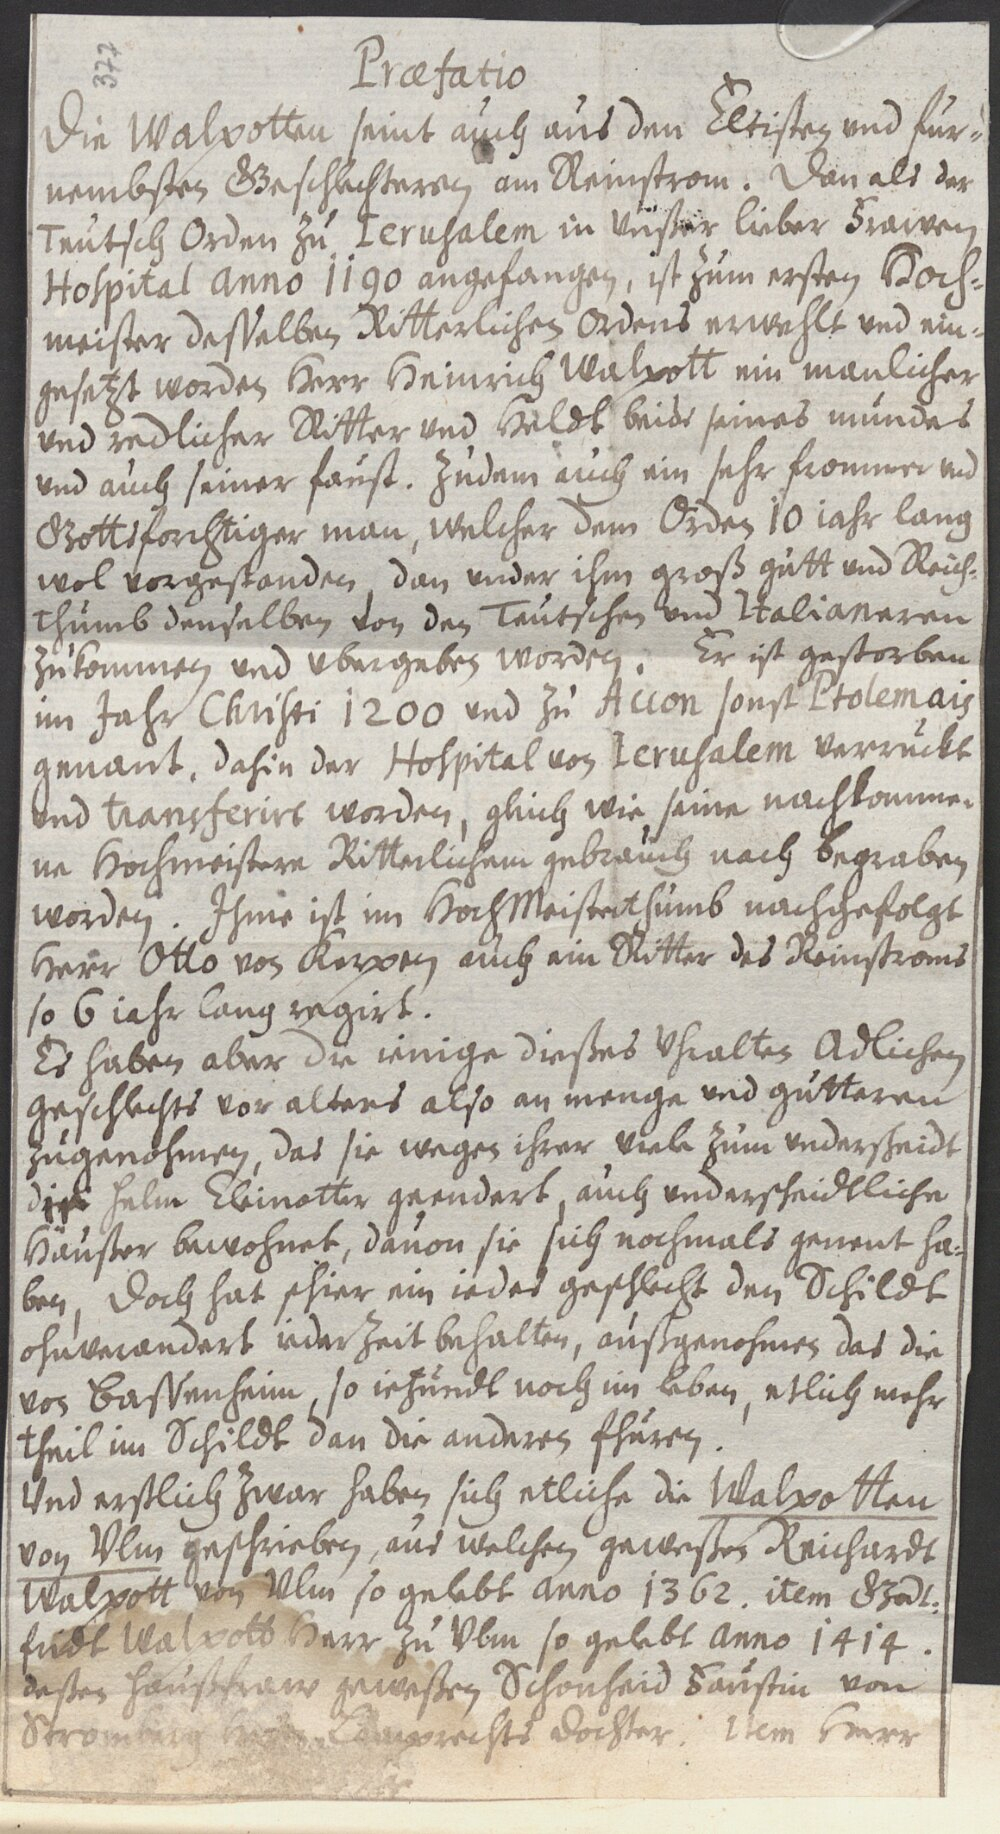 377
Præfatio
Die Walpotten seint auch aus den Eltisten und fur-
nembsten Geschlechteren am Reinstrom. Dan als der
Teutsch Orden zu Ierusalem in unßer lieber Frawen
Hospital anno 1190 angefangen, ist zum ersten Hoch-
meister desselben Ritterlichen Ordens erwehlt und ein-
gesetzt worden Herr Heinrich Walpott ein manlicher
und redlicher Ritter und Heldt beide seines mundes
und auch seiner faust. Zudem auch ein sehr frommer und
Gottsforchtiger man, welcher dem Orden 10 iahr lang
wol vorgestanden, dan under ihm groß gutt und Reich-
thumb denselben von den Teutschen und Italianeren
zukommen und ubergeben worden. Er ist gestorben
im Jahr Christi 1200 und zu Accon sonst Ptolemais
genant, dahin der Hospital von Ierusalem verruckt
und transferirt worden, glich wie seine nachkomme-
ne Hochmeistere Ritterlichem gebrauch nach begraben
worden. Ihme ist im HochMeisterthumb nachgefolgt
Herr Otto von Kerpen auch ein Ritter des Reinstroms
so 6 iahr lang regirt.
Es haben aber die ienige dießes Uhralten Adlichen
geschlechts vor alters also an menge und gutteren
zugenohmen, das sie wegen ihrer viele zum underscheidt
die helm Cleinotter geendert, auch underscheidtliche
Häußer bewohnet, dauon sie sich nochmals genent ha-
ben, Doch hat schier ein iedes geschlecht den Schildt
ohnverandert iederzeit behalten, außgenohmen das die
von Bassenheim, so ietzundt noch im leben, etlich mehr
theil im Schildt dan die anderen fhuren.
Und erstlich zwar haben sich etliche die Walpotten
von Ulm geschrieben, aus welchen geweßen Reichardt
Walpott von Ulm so gelebt anno 1362. item Godt-
fridt Walpott Herr zu Ulm so gelebt anno 1414.
deßen haußfraw geweßen Schonheid Faustin von
Stromberg Lamprechts dochter. Item Herr